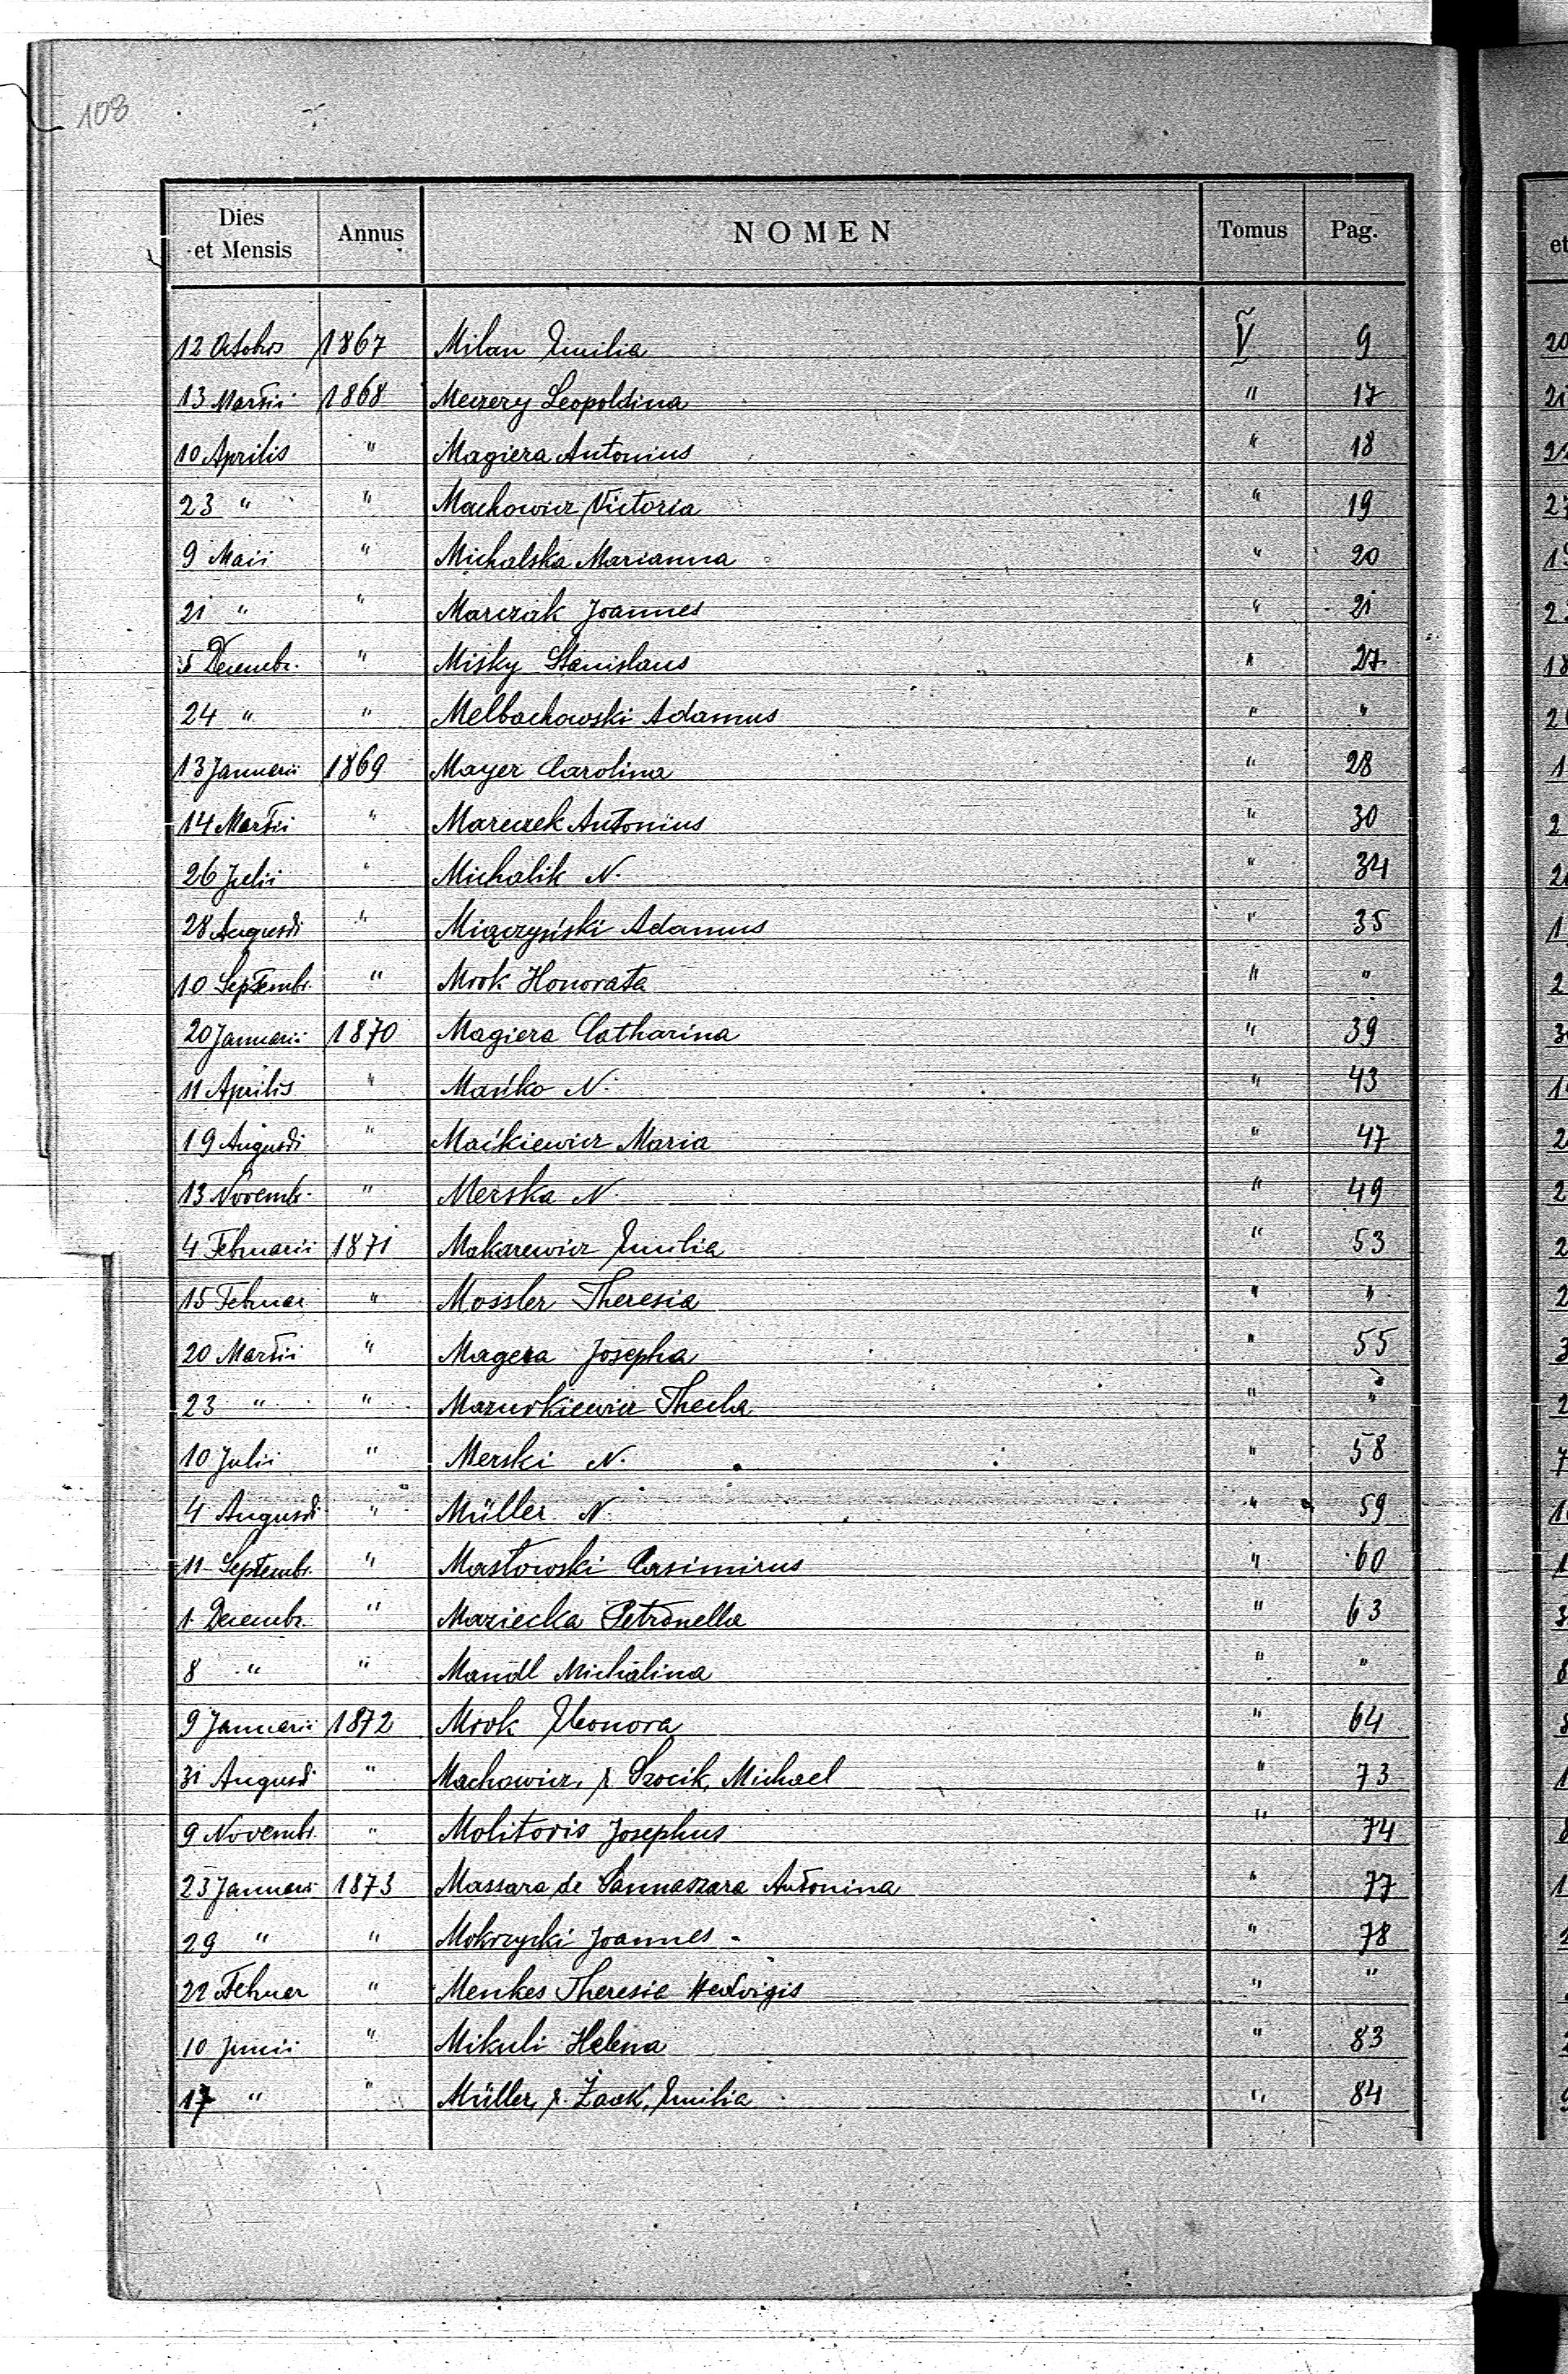 108
Dies et Mensis Annus NOMEN Tomus Pag.
12 Octobris 1867 Milan Emilia V 9
13 Martii 1868 Meczery Leopoldina " 17
10 Aprilis " Magiera Antonius " 18
23 " " Machowicz Victoria " 19
9 Maii " Michalska Marianna " 20
21 " " Marczak Joannes " 21
5 Decembr. " Misky Stanislaus " 27
24 " " Melbachowski Adamus " "
13 Januarii 1869 Mayer Carolina " 28
14 Martii " Mareczek Antonius " 30
26 Julii " Michalik N. " 34
28 Augusti " Miączyński Adamus " 35
10 Septembr. " Mrok Honorata " "
20 Januarii 1870 Magiera Catharina " 39
11 Aprilis " Mańko N. " 43
19 Augusti " Maćkiewicz Maria " 47
13 Novembr. " Merska N. " 49
4 Februarii 1871 Makarewicz Emilia " 53
15 Februar " Mossler Theresia " "
20 Martii " Magera Josepha " 55
23 " " Mazurkiewicz Thecla " "
10 Julii " Merski N. " 58
4 Augusti " Müller N. " 59
11 Septembr. " Masłowski Casimirus " 60
1 Decembr. " Maziecka Petronella " 63
8 " " Mandl Michalina " "
9 Januarii 1872 Mrok Eleonora " 64
31 Augusti " Machowicz, r. Szocik, Michael " 73
9 Novembr. " Molitoris Josephus " 74
23 Januarii 1873 Massara de Sannazara Antonina " 77
29 " " Mokrzycki Joannes " 78
22 Februar " Menkes Theresia Hedvigis " "
10 Junii " Mikuli Helena " 83
17 " " Müller, r. Żaak, Emilia " 84